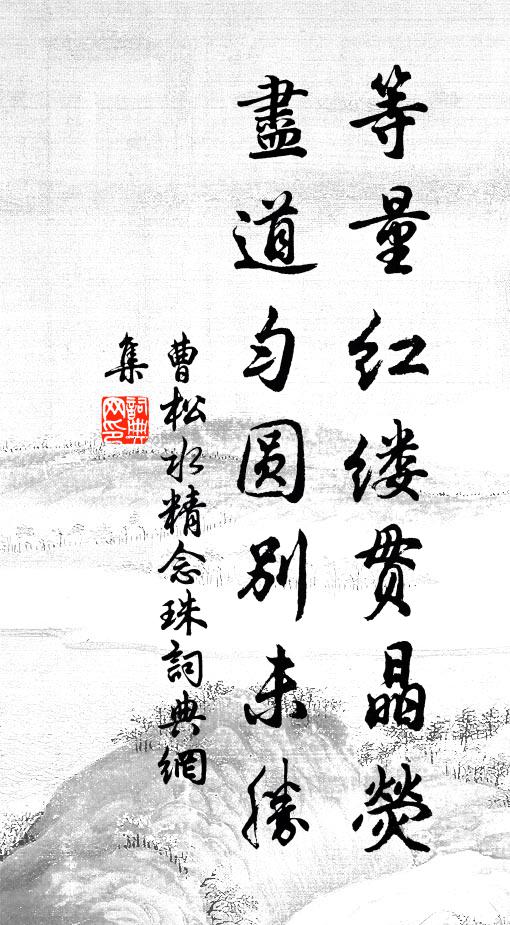 等量红缕贯晶熒
盡道匀圆别未勝
曹松水精念珠詞典網
集
詞典網印